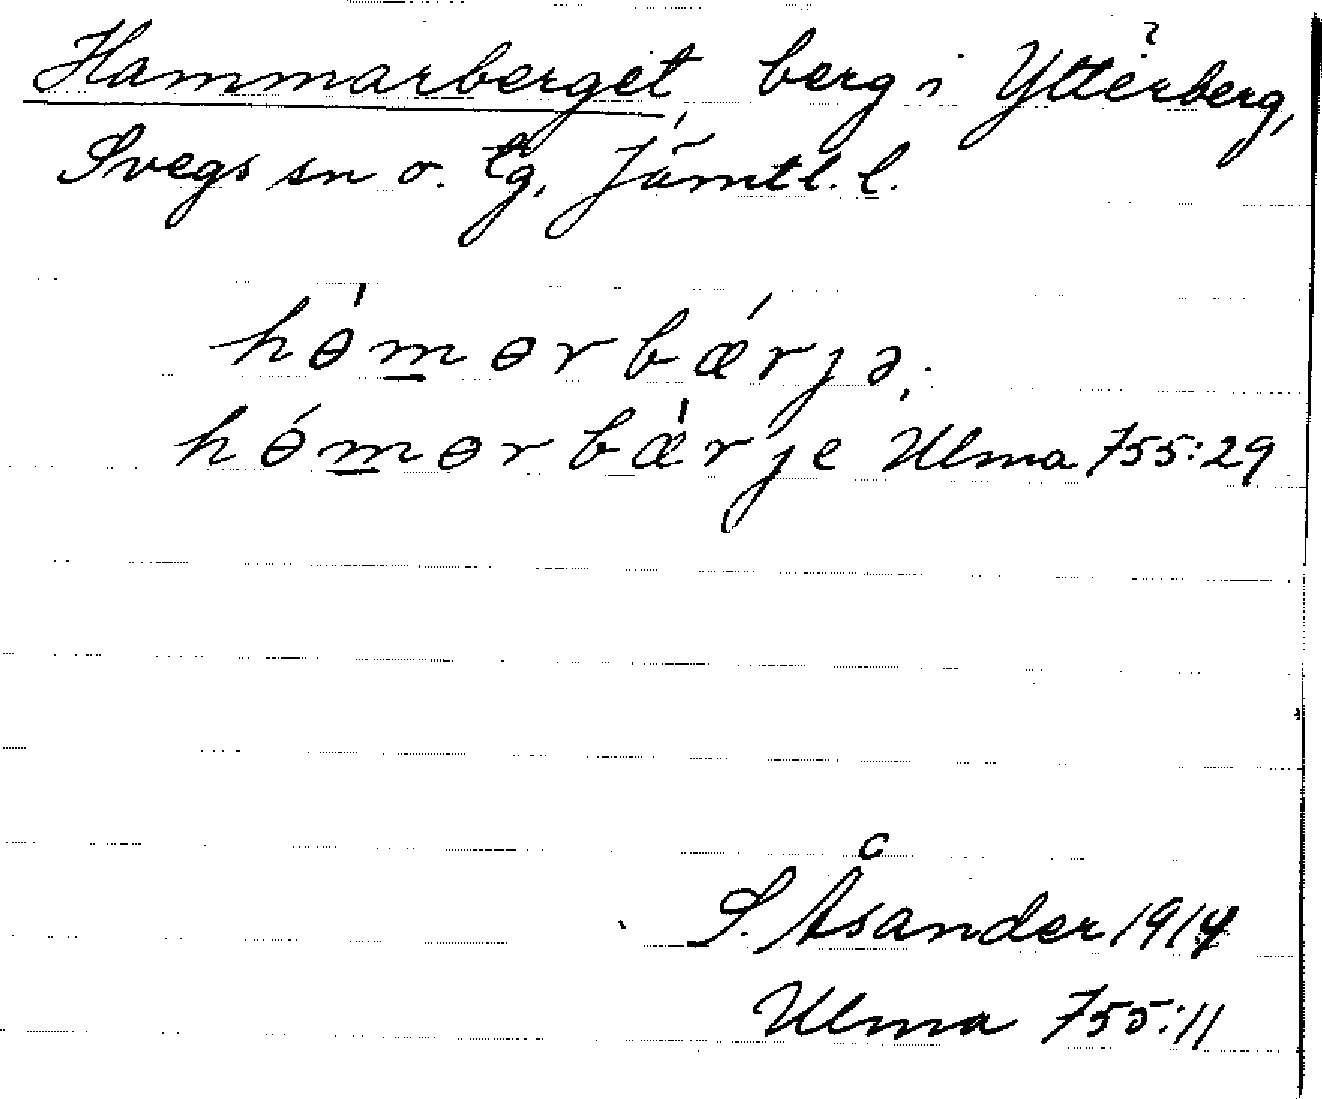 Hammarberget, berg i Ytterberg,
Svegs sn o. tg, Jämtl. l.
hɵ́m̲ɵrbǽrjə,
hɵ́m̲ɵrbǽrje Ulma 755:29
S. Åsander 1914
Ulma 755:11